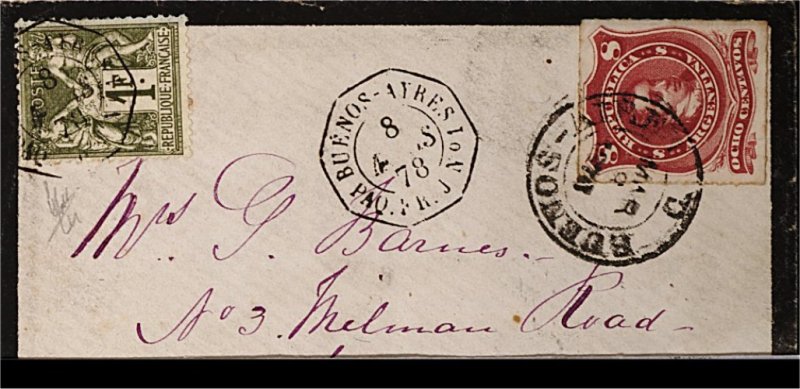 POSTES
1F
REPUBLIQUE FRANÇAISE
BUENOS-AYRES
8 5
4 78
PAQ. FR. J
8 8
REPUBLICA ARGENTINA
OCHO CENTAVOS
BUENOS
MAR
Mrs G. Barnes.
No 3. Melman Road